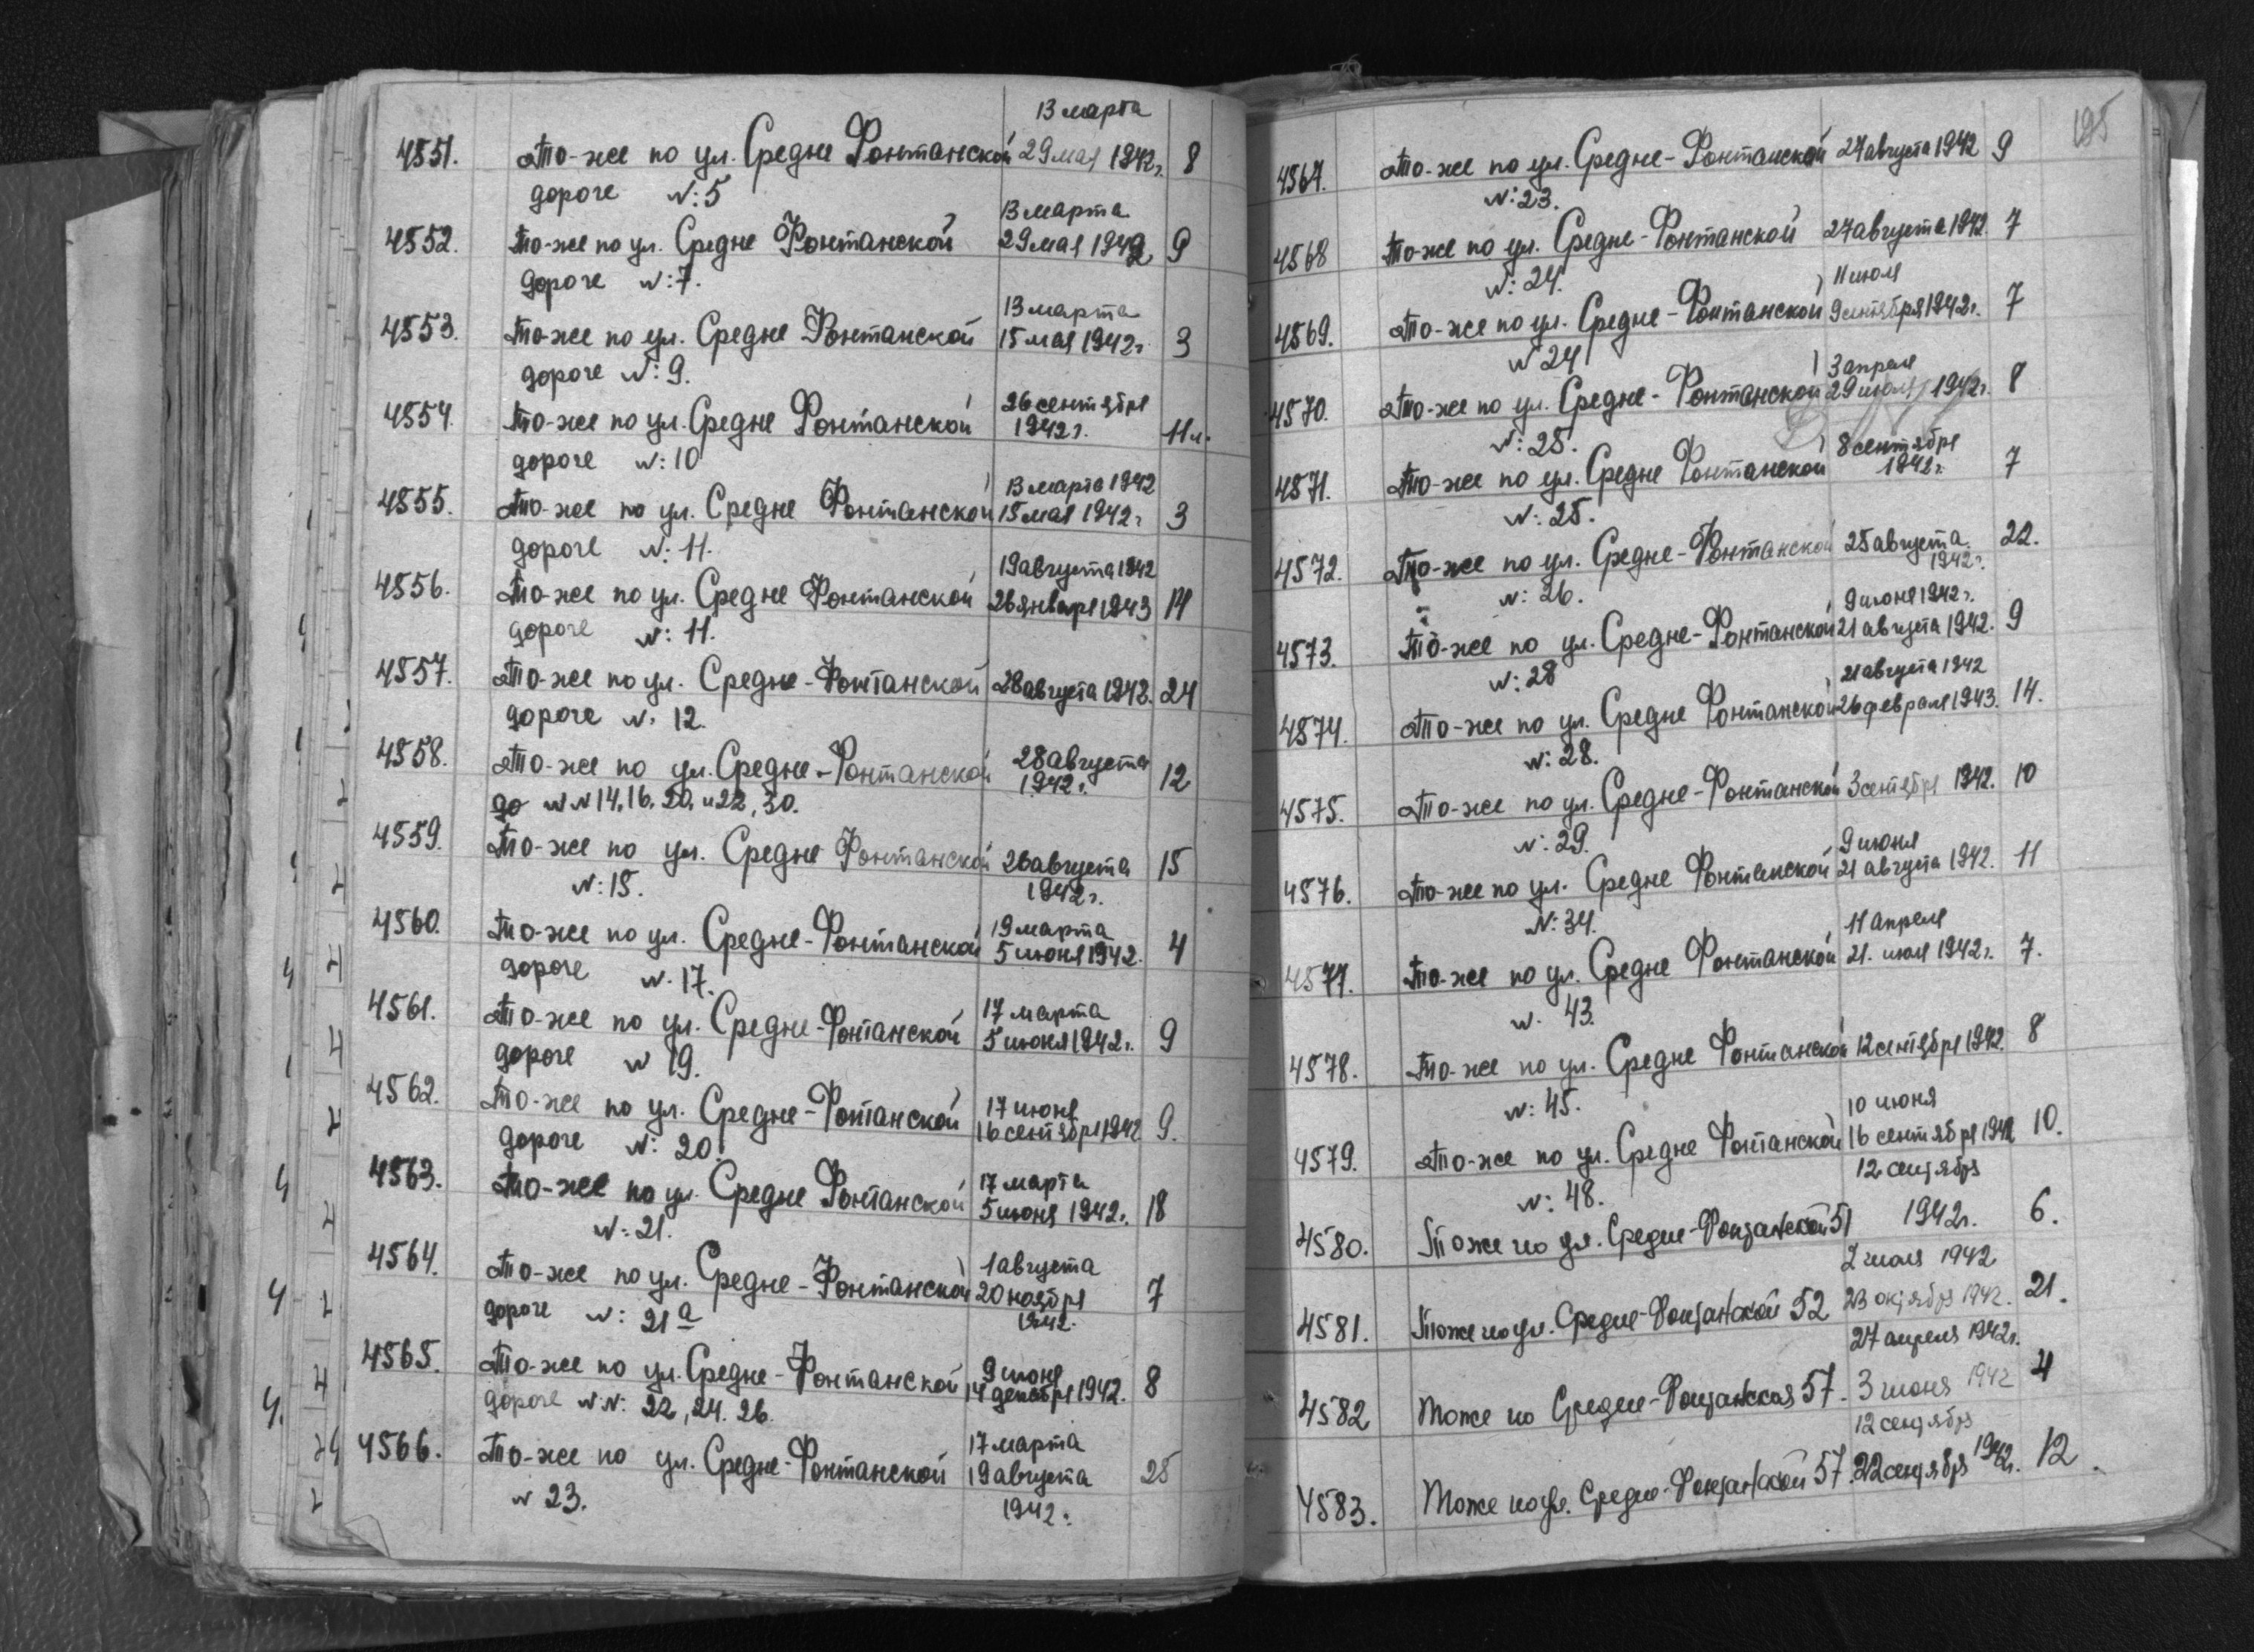 13 марта
4551. То-же по ул. Средне Фонтанской 29 мая 1942г. 8
дороге №: 5
13 марта
4552. То-же по ул. Средне Фонтанской 29 мая 1942 9
дороге №: 7.
13 марта
4553. То-же по ул. Средне Фонтанской 15 мая 1942г 3
дороге №: 9.
26 сентября
4554. То-же по ул. Средне Фонтанской 1942г. 11л.
дороге №: 10
13 марта 1942
4555. То-же по ул. Средне Фонтанской 15 мая 1942г 3
дороге №: 11.
19 августа 1942
4556. То-же по ул. Средне Фонтанской 26 января 1943 14
дороге №: 11.
4557. То-же по ул. Средне-Фонтанской 28 августа 1942. 24
дороге №. 12.
4558. То-же по ул. Средне-Фонтанской 28 августа 12
до №№ 14, 16, 20, и 22, 30. 1942г.
4559. То-же по ул. Средне Фонтанской 26 августа 15
№: 15. 1942г.
4560. То-же по ул. Средне-Фонтанской 19 марта
дороге №. 17. 5 июня 1942. 4
4561. То-же по ул. Средне-Фонтанской 17 марта
дороге № 19. 5 июня 1942г. 9
4562. То-же по ул. Средне-Фонтанской 17 июня
дороге №: 20. 16 сентября 1942 9.
4563. То-же по ул. Средне Фонтанской 17 марта
№: 21. 5 июня 1942г. 18
4564. То-же по ул. Средне-Фонтанской 1 августа
дороге №: 21 а 20 ноября 7
1942.
4565. То-же по ул. Средне-Фонтанской 9 июня
дороге №№: 22, 24. 26. 14 декабря 1942. 8
4566. То-же по ул. Средне-Фонтанской 17 марта
№ 23. 19 августа 25
1942г.
195
4567. То-же по ул. Средне-Фонтанской 27 августа 1942 9
№: 23.
4568 То-же по ул. Средне-Фонтанской 27 августа 1942. 7
№: 24.
11 июля
4569. То-же по ул. Средне-Фонтанской 9 сентября 1942г. 7
№ 24
3 апреля
4570. То-же по ул. Средне-Фонтанской 29 июля 1942г. 8
№: 25.
8 сентября
4571. То-же по ул. Средне Фонтанской 1942г. 7
№: 25.
4572. То-же по ул. Средне-Фонтанской 25 августа 22.
№: 26. 1942г.
9 июня 1942г.
4573. То-же по ул. Средне-Фонтанской 21 августа 1942. 9
№: 28
21 августа 1942
4574. То-же по ул. Средне Фонтанской 26 февраля 1943. 14.
№: 28.
4575. То-же по ул. Средне-Фонтанской 3 сентября 1942. 10
№: 29.
9 июня
4576. То-же по ул. Средне Фонтанской 21 августа 1942. 11
№: 34.
11 апреля
4577. То-же по ул. Средне Фонтанской 21. июля 1942г. 7.
№. 43.
4578. То-же по ул. Средне Фонтанской 12 сентября 1942. 8
№: 45.
10 июня
4579. То-же по ул. Средне Фонтанской 16 сентября 1942 10.
№: 48.
12 сентября
4580. То же по ул. Средне-Фонтанской 51 1942г. 6.
2 июля 1942
4581. То же по ул. Средне-Фонтанской 52 23 октября 1942. 21.
27 апреля 1942г.
4582 То же по Средне-Фонтанская 57. 3 июня 1942 4
12 сентября
4583. То же по ул. Средне-Фонтанской 57. 22 сентября 1942г. 12.